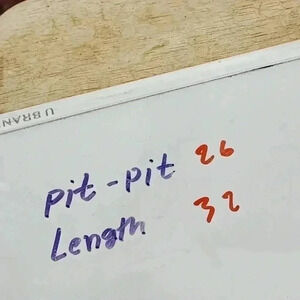 U BRAN
pit-pit 26
Length 32